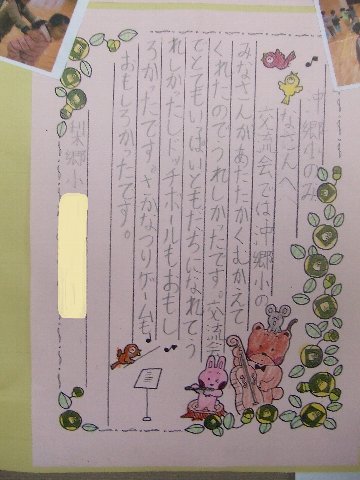 沖郷小のみ
なさんへ
交流会では沖郷小の
みなさんがあたたかくむかえて
くれたのでうれしかったです。交流会
でとてもいっぱいともだちになれてう
れしかたしドッチボールもおもし
ろかたです。さかなつりゲームも
おもしろかったです。
梨郷小